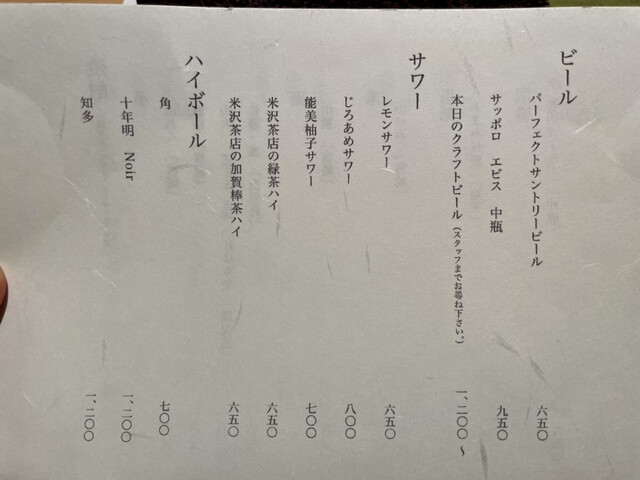 ビール
パーフェクトサントリービール 六五〇
サッポロ エビス 中瓶 九五〇
本日のクラフトビール（スタッフまでお尋ね下さい。） 一、二〇〇～
サワー
レモンサワー 六五〇
じろあめサワー 八〇〇
能美柚子サワー 七〇〇
米沢茶店の緑茶ハイ 六五〇
米沢茶店の加賀棒茶ハイ 六五〇
ハイボール
角 七〇〇
十年明 Noir 一、二〇〇
知多 一、二〇〇